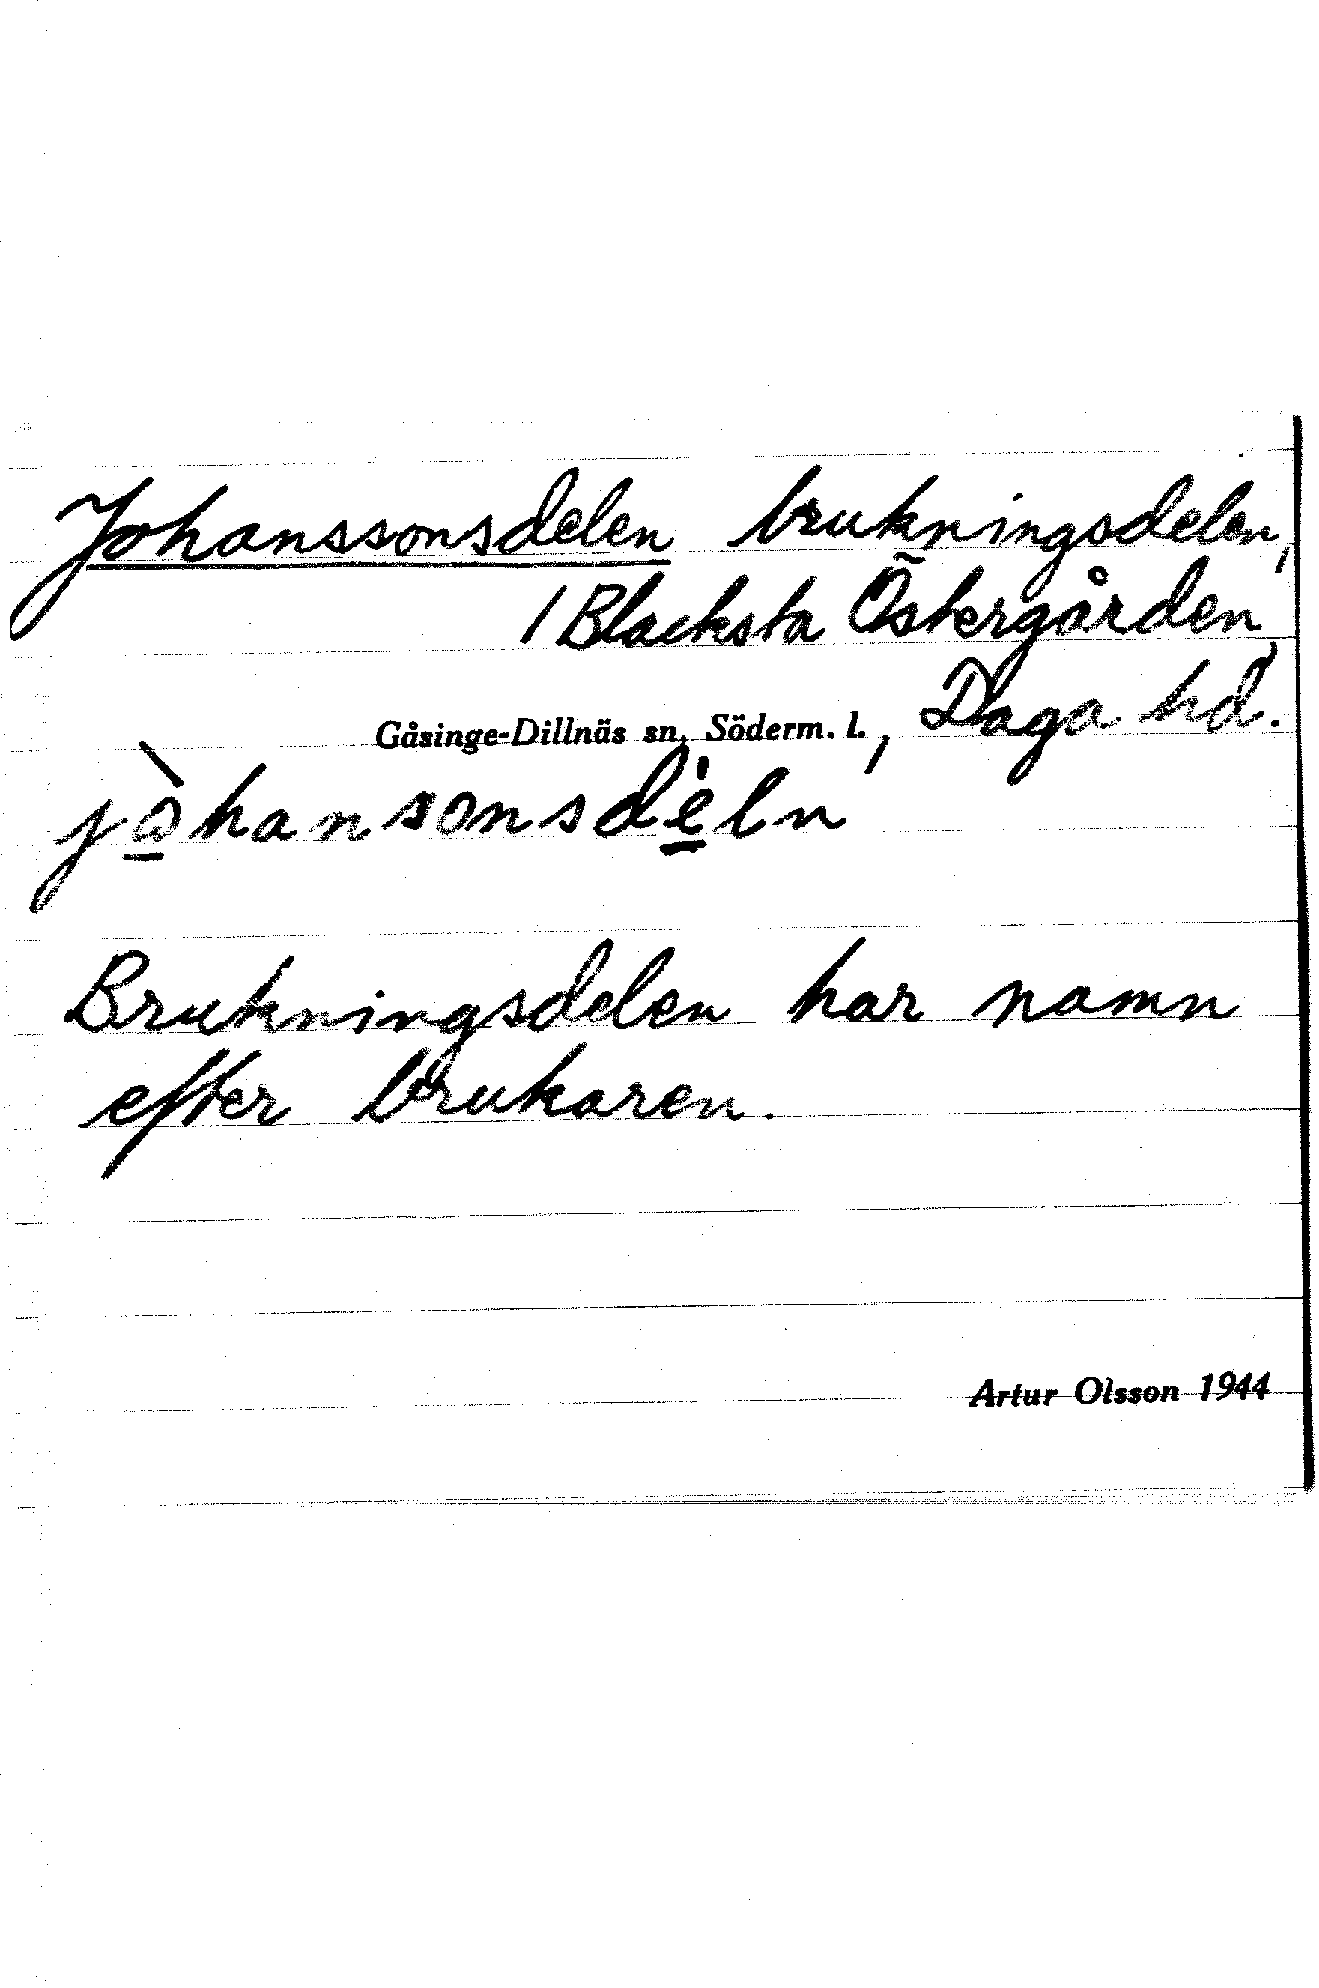 Johanssonsdelen brukningsdelen,
1 Blacksta Östergården,
Gåsinge-Dillnäs sn, Söderm. l., Daga hd.
jò̲hansonsde̲̍ln
Brukningsdelen har namn
efter brukaren.
Artur Olsson 1944